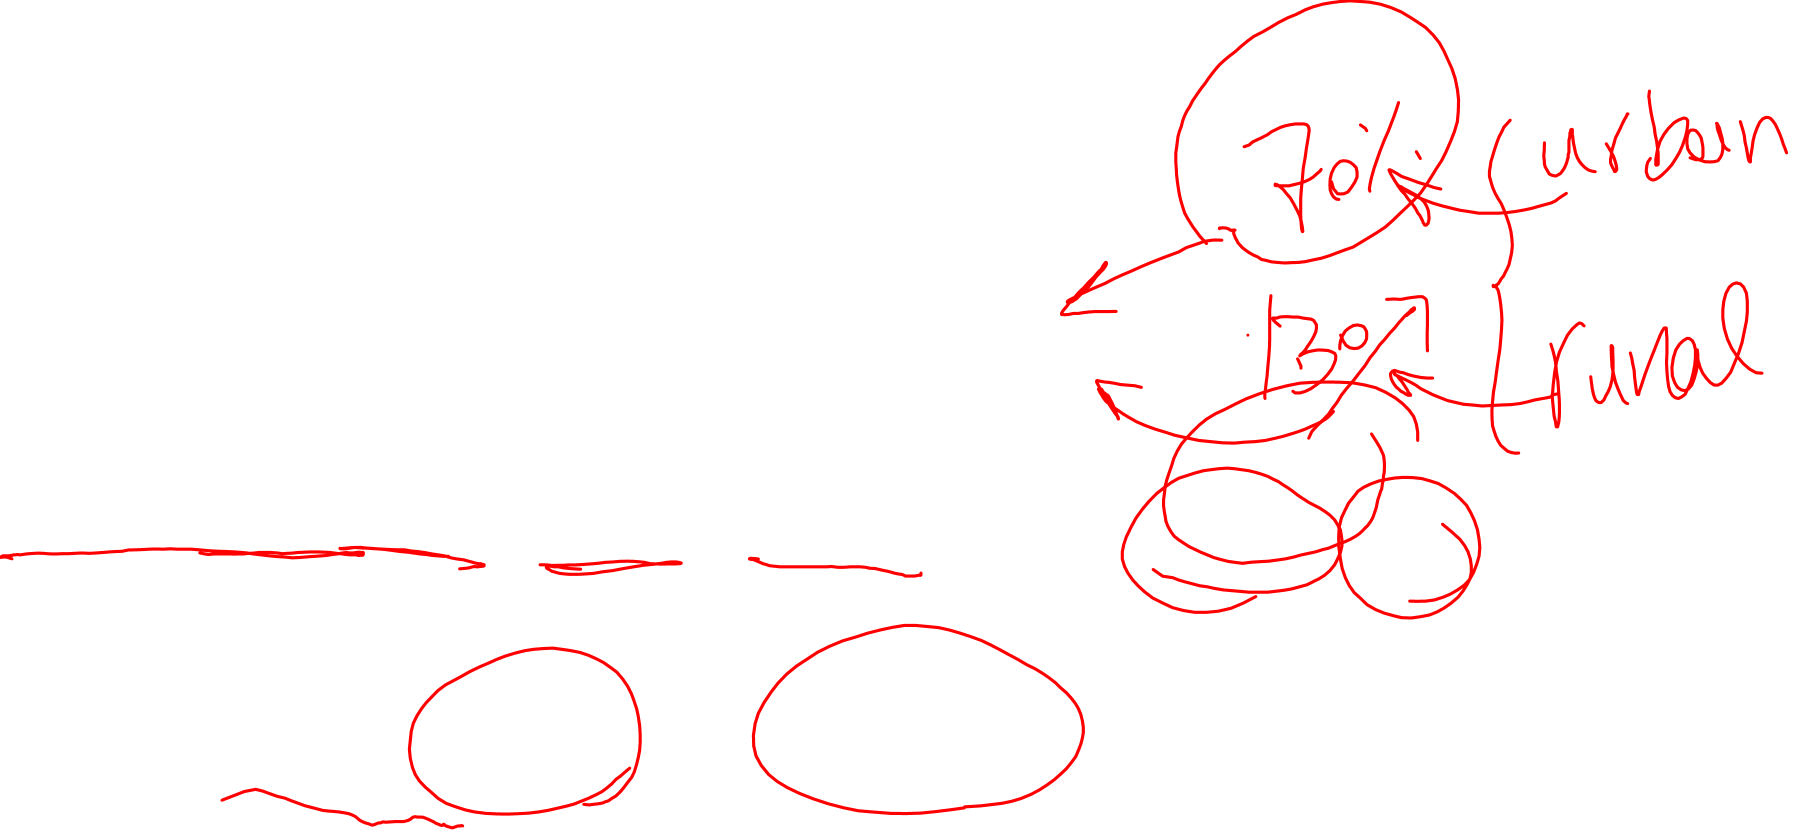 70% urban
30 rural